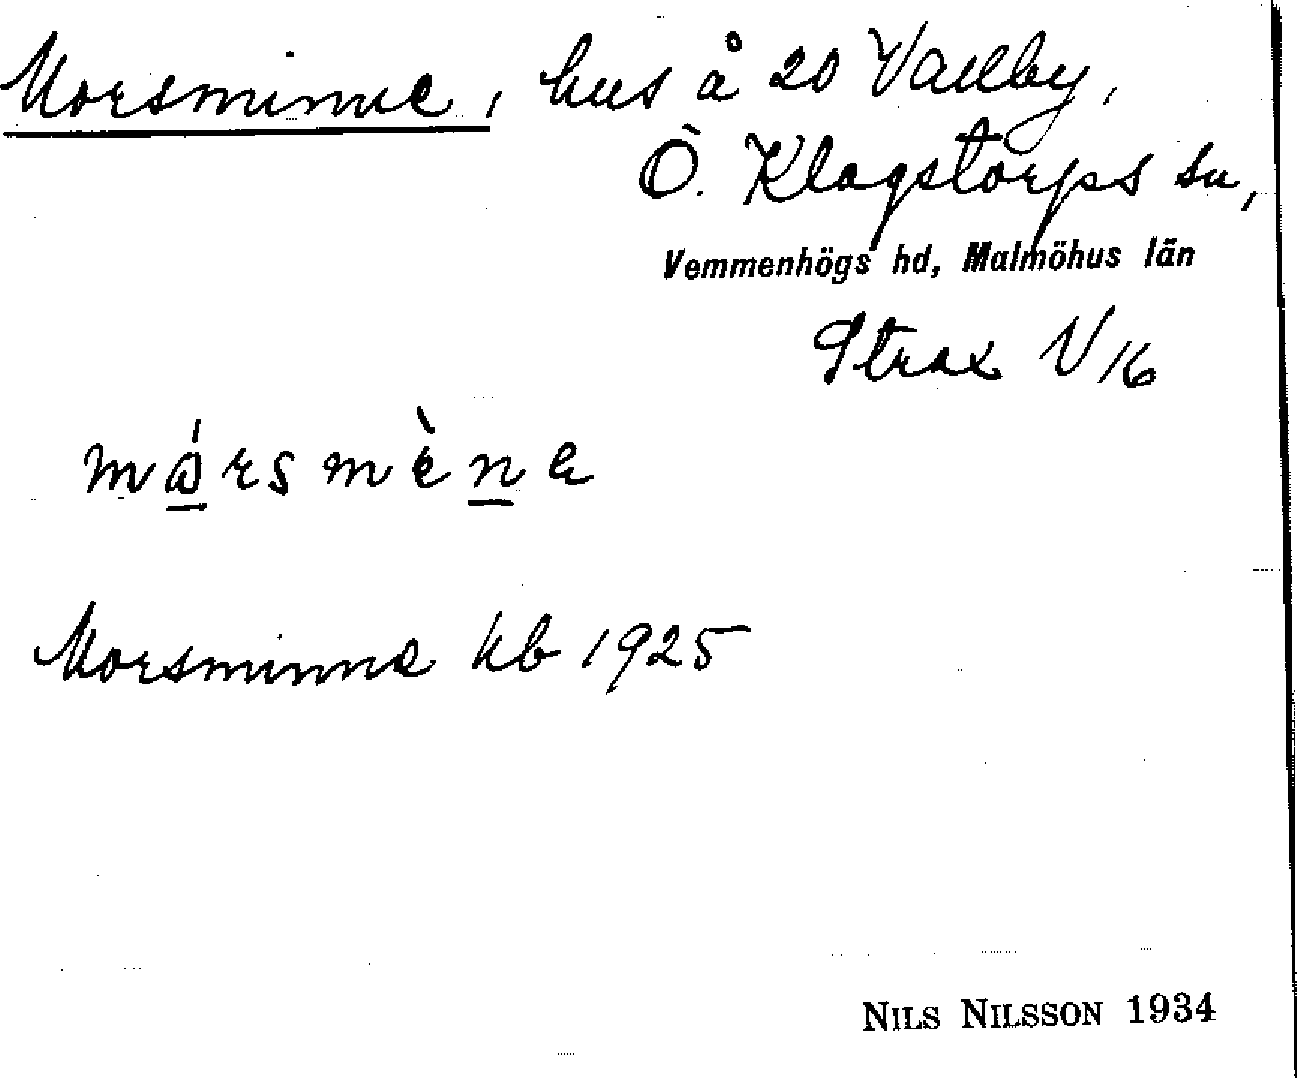 Morsminne, hus å 20 Vallby,
Ö. Klagstorps sn,
Vemmenhögs hd, Malmöhus län
Strax V 16
Morsminne kb 1925
NILS NILSSON 1934